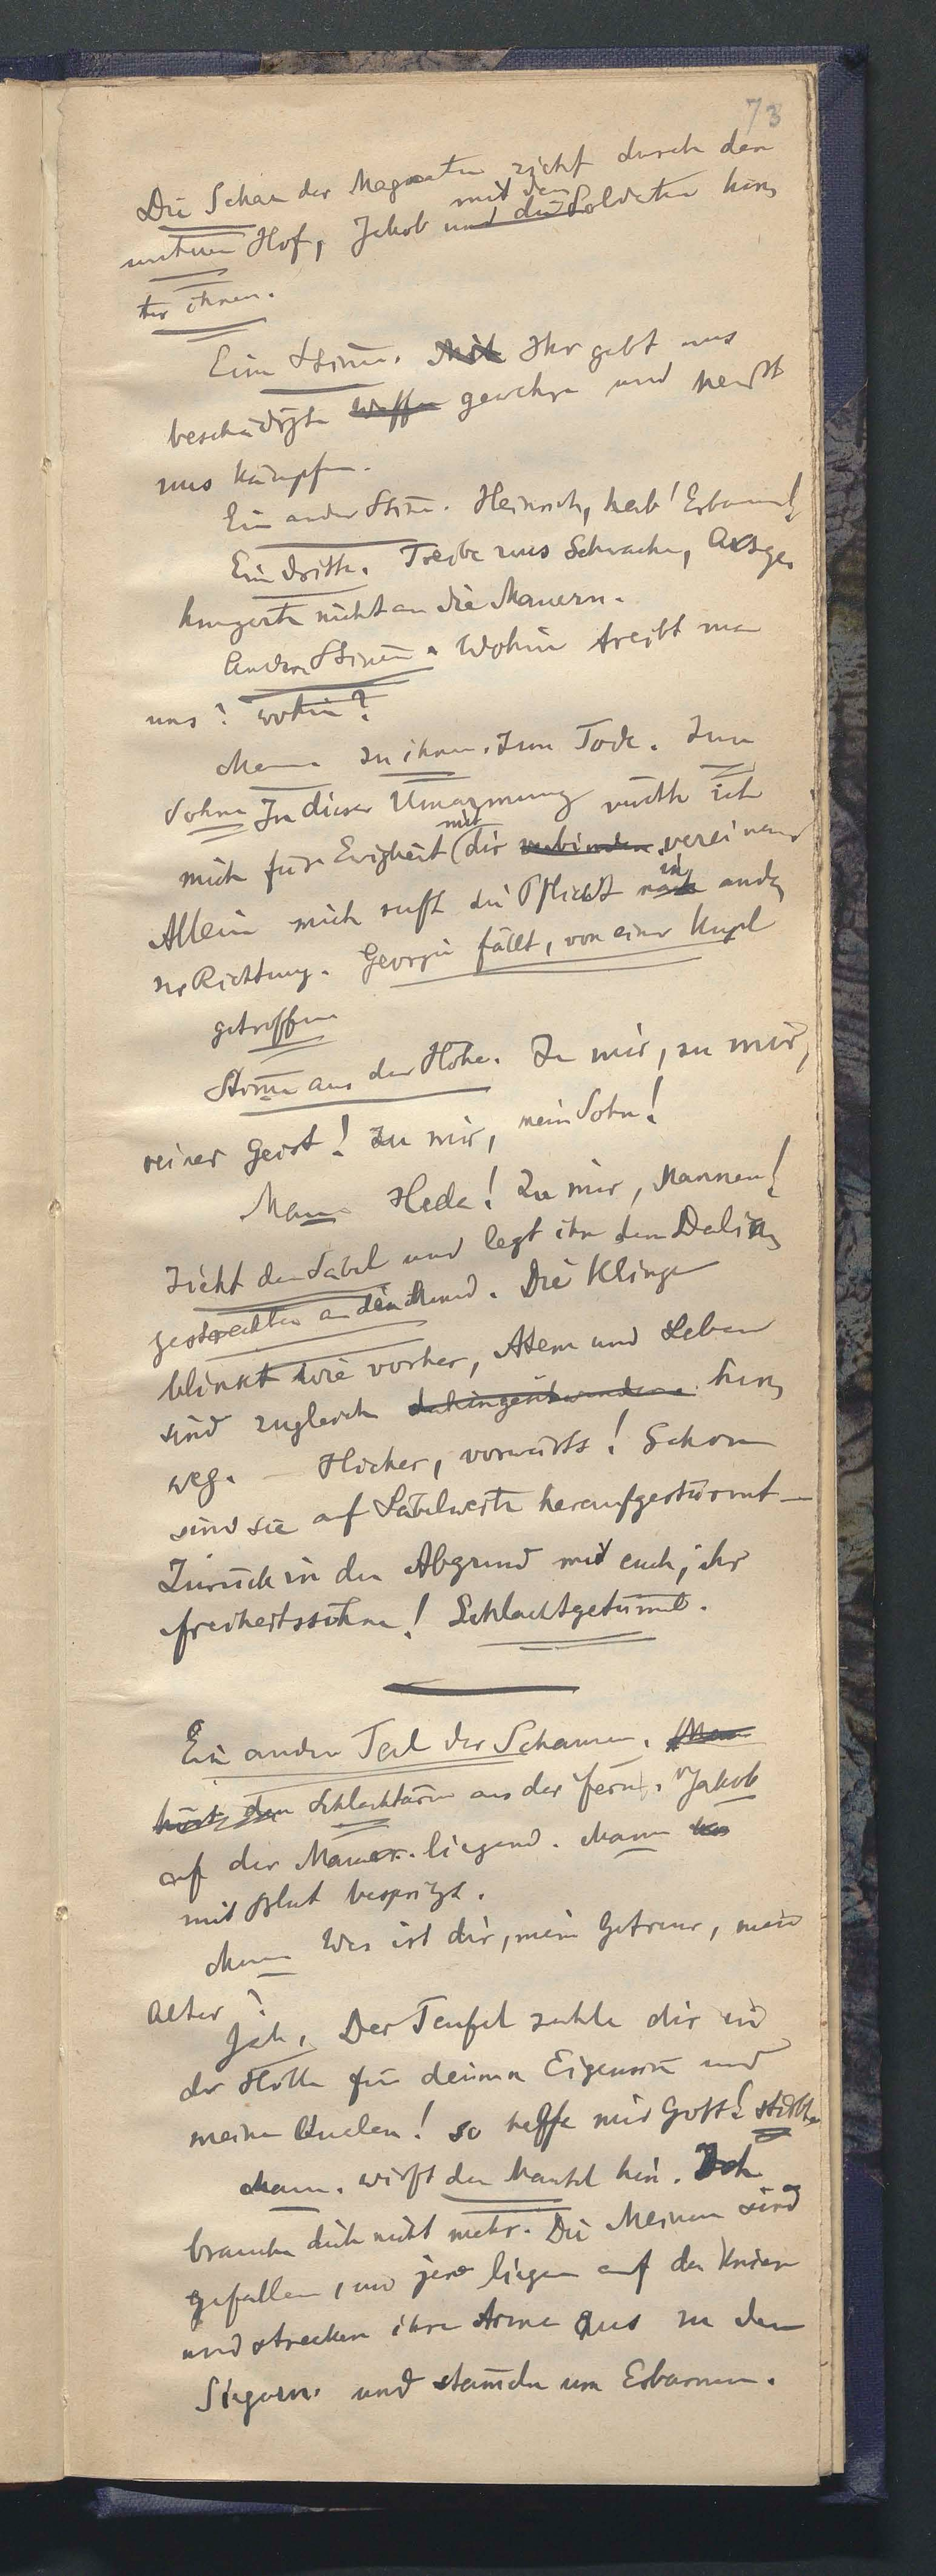 73
Die Schar der Magnaten zieht durch den
mit den
unteren Hof, Jakob und die Soldaten hin,
ter ihnen.
Eine Stimme. Mit Ihr gebt uns
beschädigte Waffen gewehre und heißt
uns kämpfen.
Ein andre Stime. Heinrich, hab' Erbarmen!
Ein dritte. Treibe uns Schwache, Ausge,
hungerte nicht an die Mauern.
Andere Stimen. Wohin treibt man
uns? wohin?
Mann zu ihnen. Zum Tode. Zum
Sohne In dieser Umarmung möchte ich
mit
mich für Ewigkeit (dir verbinden vereinen
in
Allein mich ruft die Pflicht nach ande,
rer Richtung. Georgie fällt, von einer Kugel
getroffen
Stime aus der Höhe. Zu mir, zu mir,
reiner Geist! Zu mir, mein Sohn!
Mann Heda! Zu mir, Mannen!
Zieht den Säbel und legt ihn dem Dalie,
gestreckten an den Mund. Die Klinge
blinkt wie vorher, Atem und Leben
sind zugleich dahingeschwunden hin,
weg. – Hieher, vorwärts! Schon
sind sie auf Säbelweite heraufgestürmt –
Zurück in den Abgrund mit euch, ihr
freiheitssöhne! Schlachtgetümel.
Ein andrer Teil der Schanzen. Man
hört den Schlachtlärm aus der ferne. Jakob
auf der Mauer liegend. Mann
mit Blut bespritzt.
Mann Was ist dir, mein Getreuer, mein
Alter?
Jak. Der Teufel zahle dir in
der Hölle für deinen Eigensinn und
meine Qualen! so helfe mir Gott! stirbt
Mann. wirft den Mantel hin. Ich
brauche dich nicht mehr. Die Meinen sind
gefallen, und jene liegen auf den Knien
und strecken ihre Arme aus zu den
Siegern und stameln um Erbarmen.